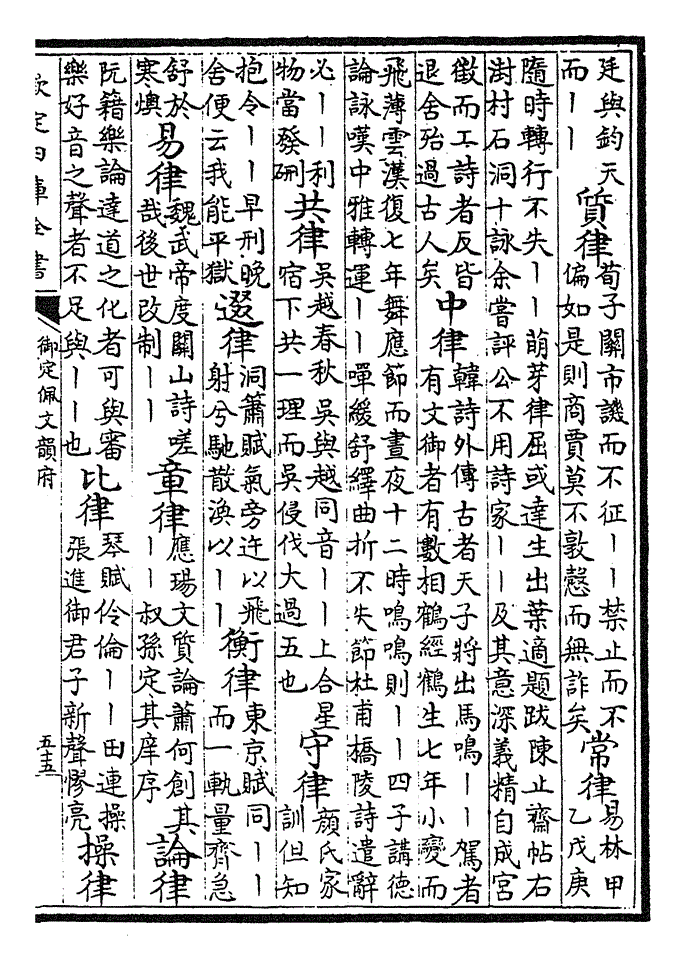 廷與鈞天
而丨丨
質律
荀子關市譏而不征丨丨禁止而不
偏如是則商賈莫不敦慤而無詐矣
常律
易林甲
乙戊庚
隨時轉行不失丨丨萌芽律屈或達生出葉適題跋陳止齋帖右
澍村石洞十詠余嘗評公不用詩家丨丨及其意深義精自成宮
徵而工詩者反皆
退舍殆過古人矣
中律
韓詩外傳古者天子將出馬鳴丨丨駕者
有文御者有數相鶴經鶴生七年小變而
飛薄雲漢復七年舞應節而晝夜十二時鳴鳴則丨丨四子講德
論詠嘆中雅轉運丨丨嘽緩舒繹曲折不失節杜甫橋陵詩遣辭
必丨丨利
物當發硎
共律
吳越春秋吳與越同音丨丨上合星
宿下共一理而吳侵伐大過五也
守律
顏氏家
訓但知
抱令丨丨早刑晚
舍便云我能平獄
逫律
洞簫賦氣旁迕以飛
射兮馳散渙以丨丨
衡律
東京賦同丨丨
而一軌量齊急
舒於
寒燠
易律
魏武帝度關山詩嗟
哉後世改制丨丨
章律
應瑒文質論蕭何創其
丨丨叔孫定其庠序
論律
阮籍樂論達道之化者可與審
樂好音之聲者不足與丨丨也
比律
琴賦伶倫丨丨田連操
張進御君子新聲憀亮
操律
欽定四庫全書
御定佩文韻府
五十五